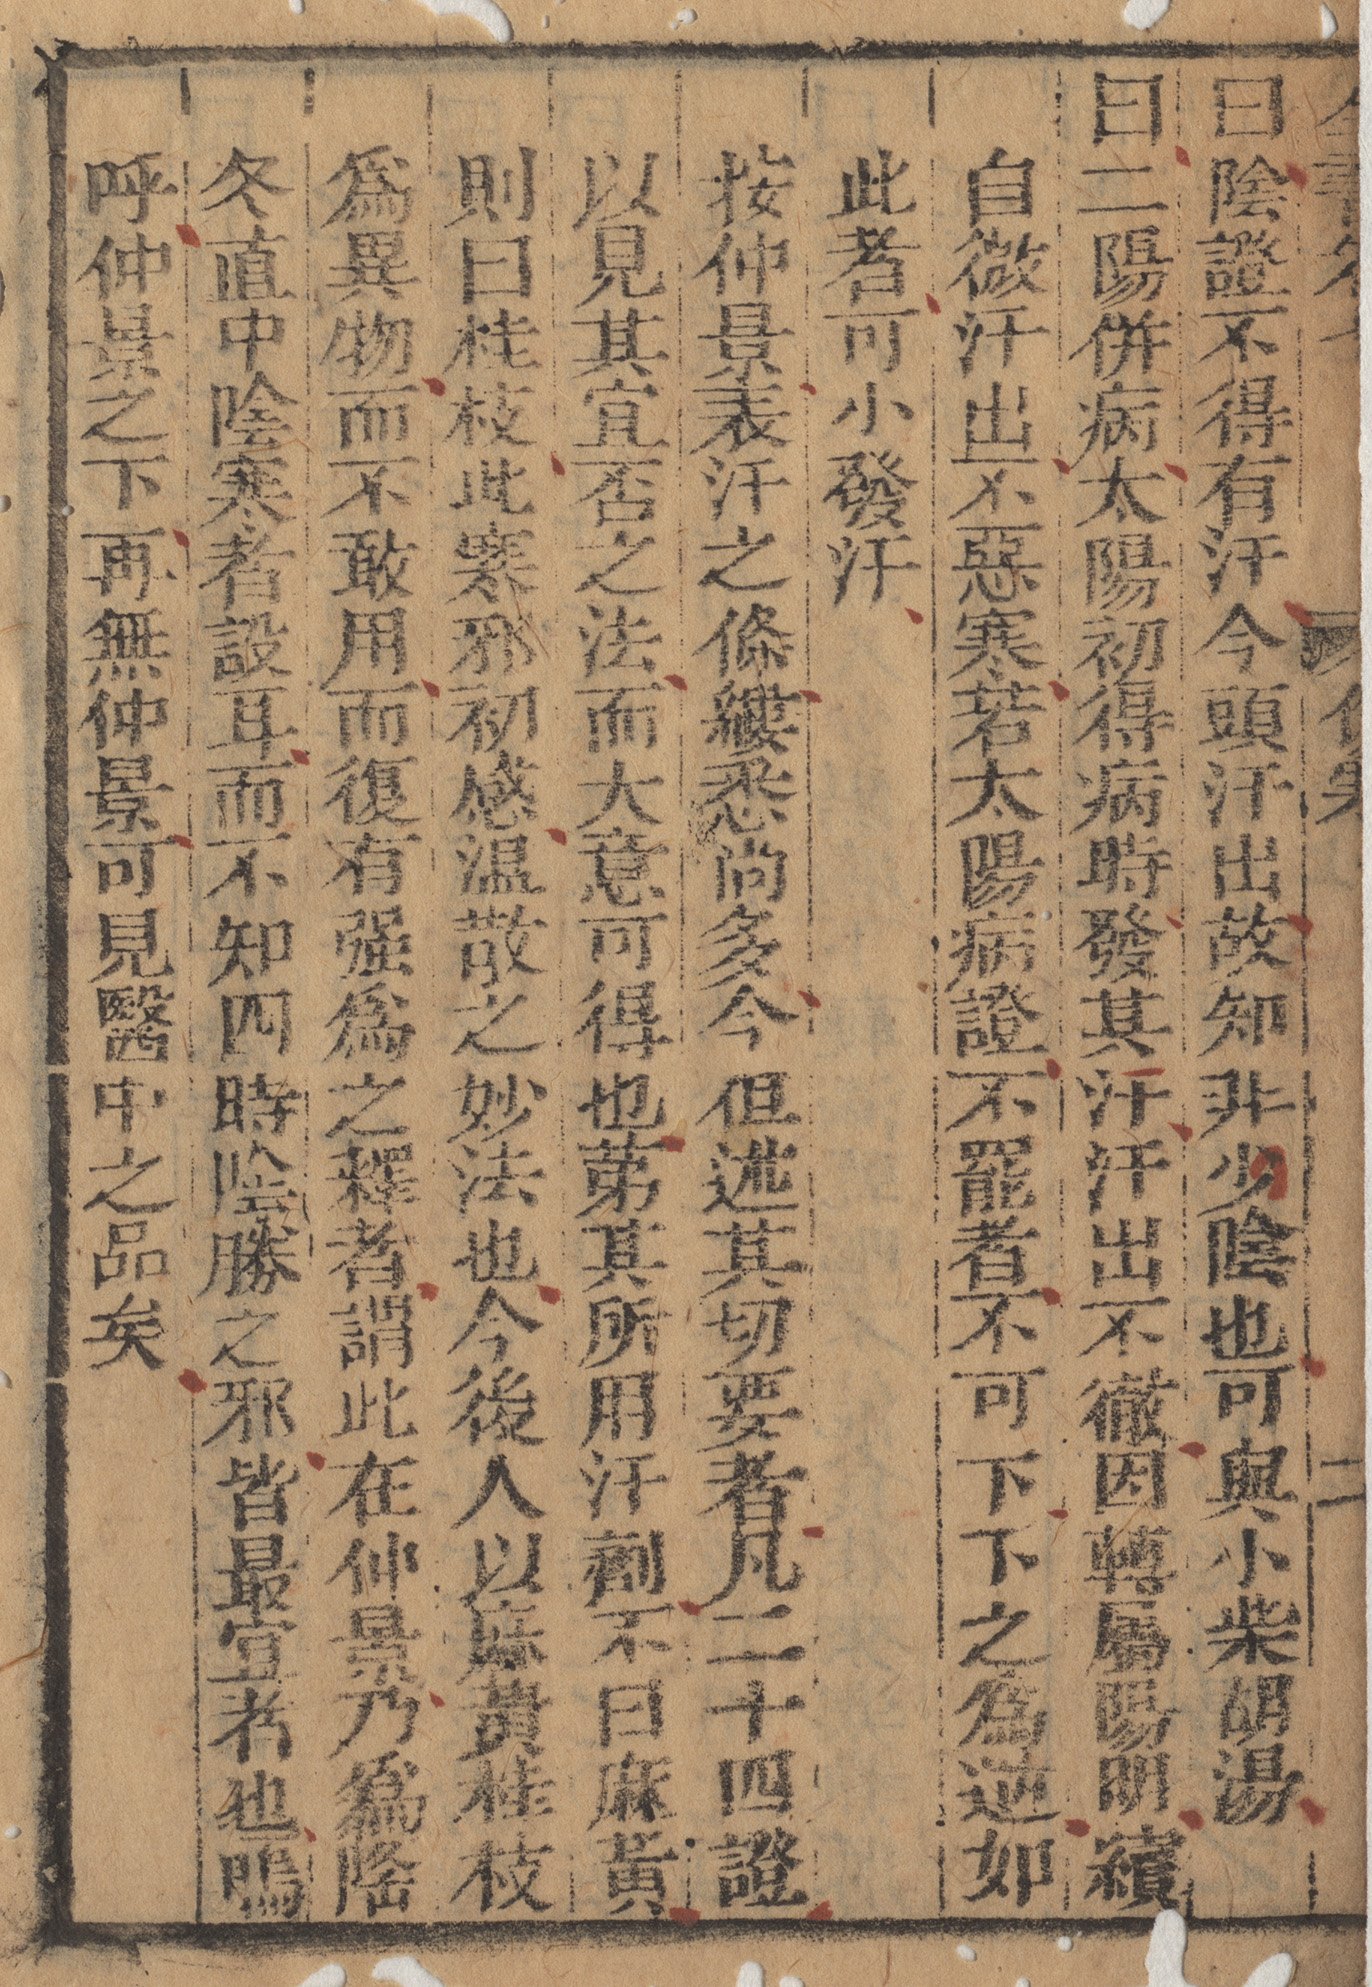 曰陰證不得有汗今頭汗出故知非少陰也可與小柴胡湯
曰二陽併病太陽初得病時發其汗汗出不徹因轉屬陽明續
自微汗出不惡寒若太陽病證不罷者不可下下之爲逆如
此者可小發汗
按仲景表汗之條縷悉尚多今但述其切要者凡二十四證
以見其宜否之法而大意可得也第其所用汗劑不曰麻黃
則曰桂枝此寒邪初感温散之妙法也今後人以麻黃桂枝
爲異物而不敢用而復有强爲之釋者謂此在仲景乃爲隆
冬直中陰寒者設耳而不知四時陰勝之邪皆最宜者也嗚
呼仲景之下再無仲景可見醫中之品矣
二